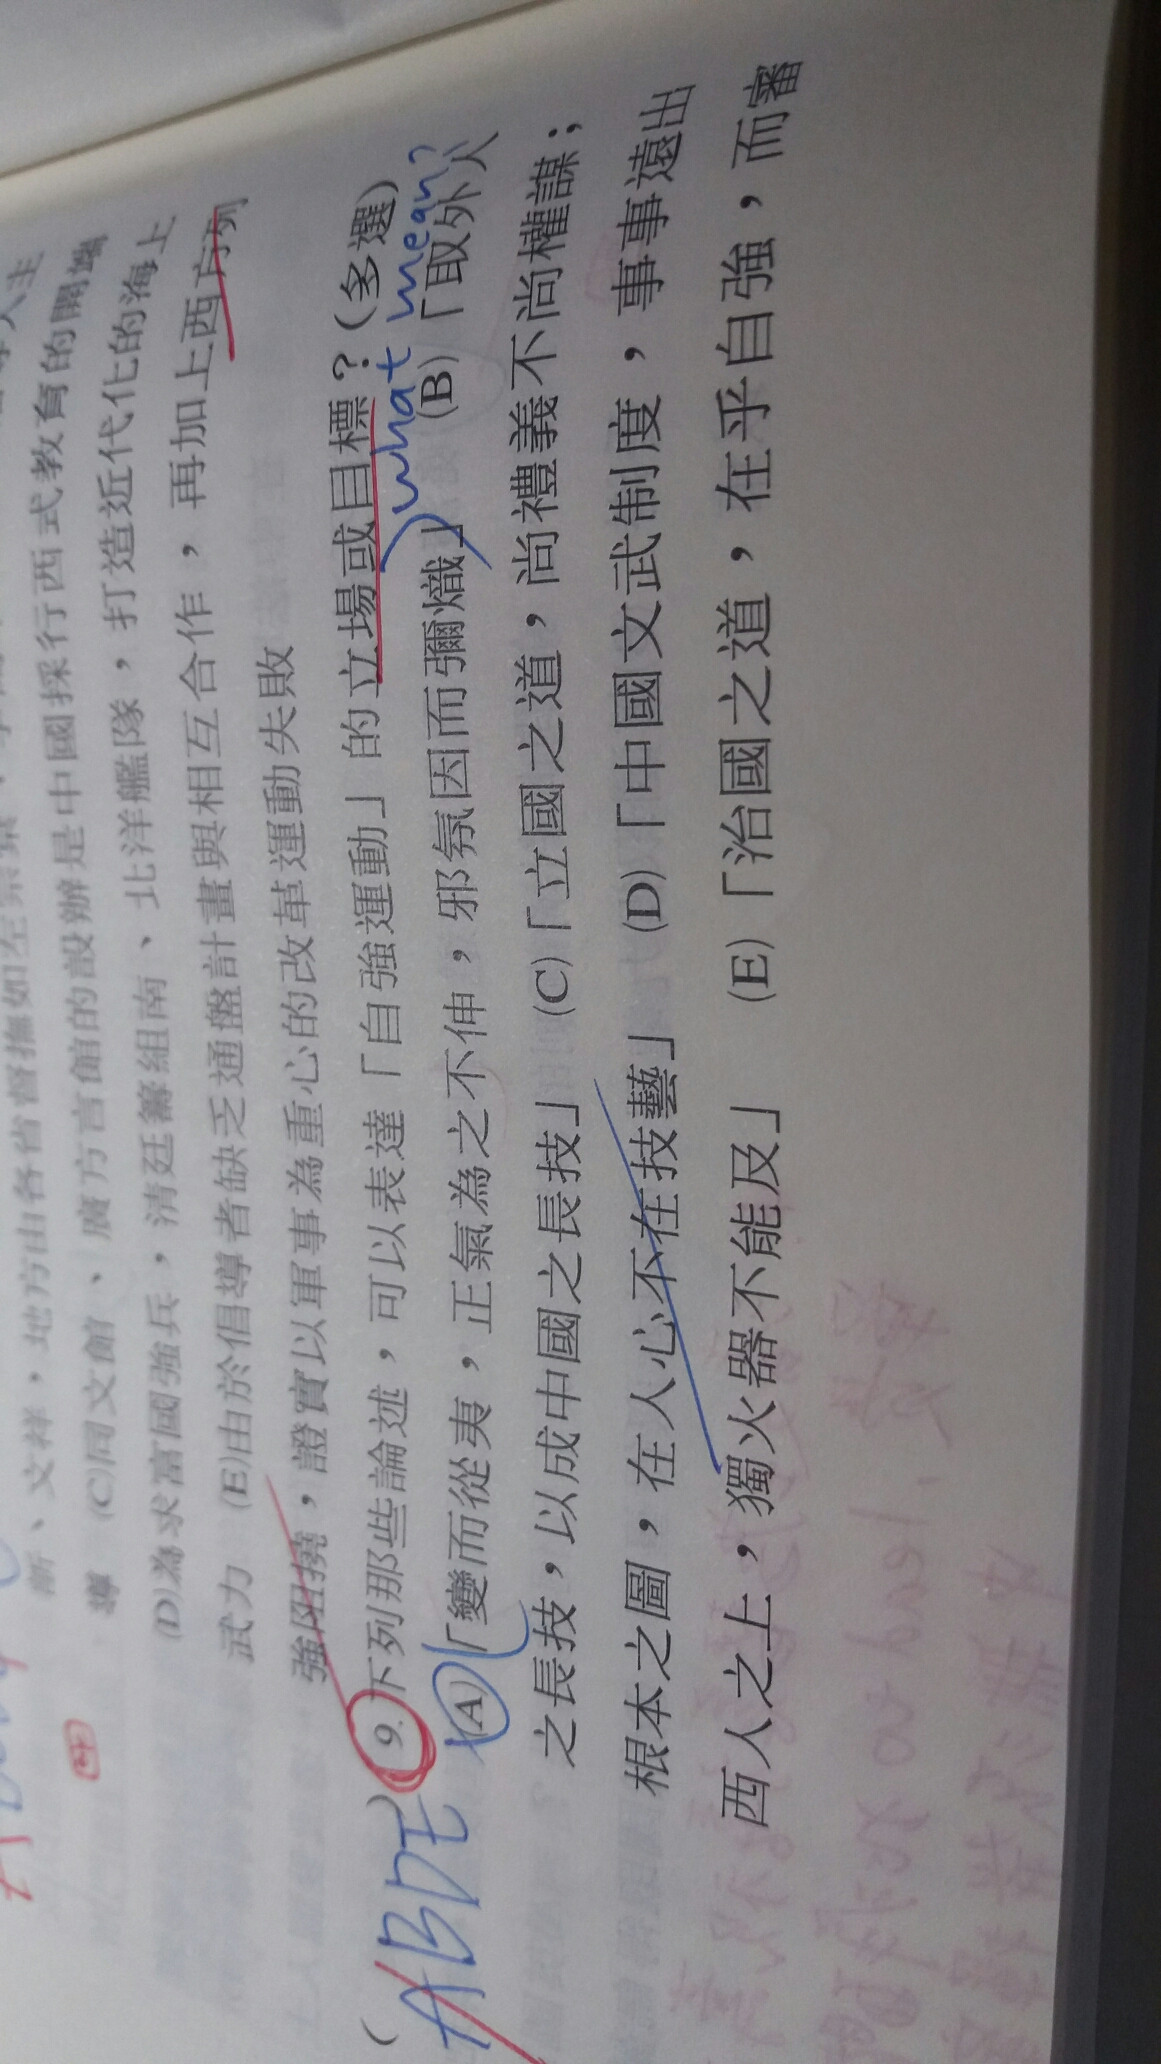 主
新、文祥，地方由各省督撫如左宗棠
導 (C)同文館、廣方言館的設辦是中國採行西式教育的開端
(D)為求富國強兵，清廷籌組南、北洋艦隊，打造近代化的海上
武力 (E)由於倡導者缺乏通盤計畫與相互合作，再加上西方列
強阻撓，證實以軍事為重心的改革運動失敗
( ABDE ) 9.下列那些論述，可以表達「自強運動」的立場或目標？（多選）
what mean?
(A)「變而從夷，正氣為之不伸，邪氛因而彌熾」 (B)「取外人
之長技，以成中國之長技」 (C)「立國之道，尚禮義不尚權謀；
根本之圖，在人心不在技藝」 (D)「中國文武制度，事事遠出
西人之上，獨火器不能及」 (E)「治國之道，在乎自強，而審